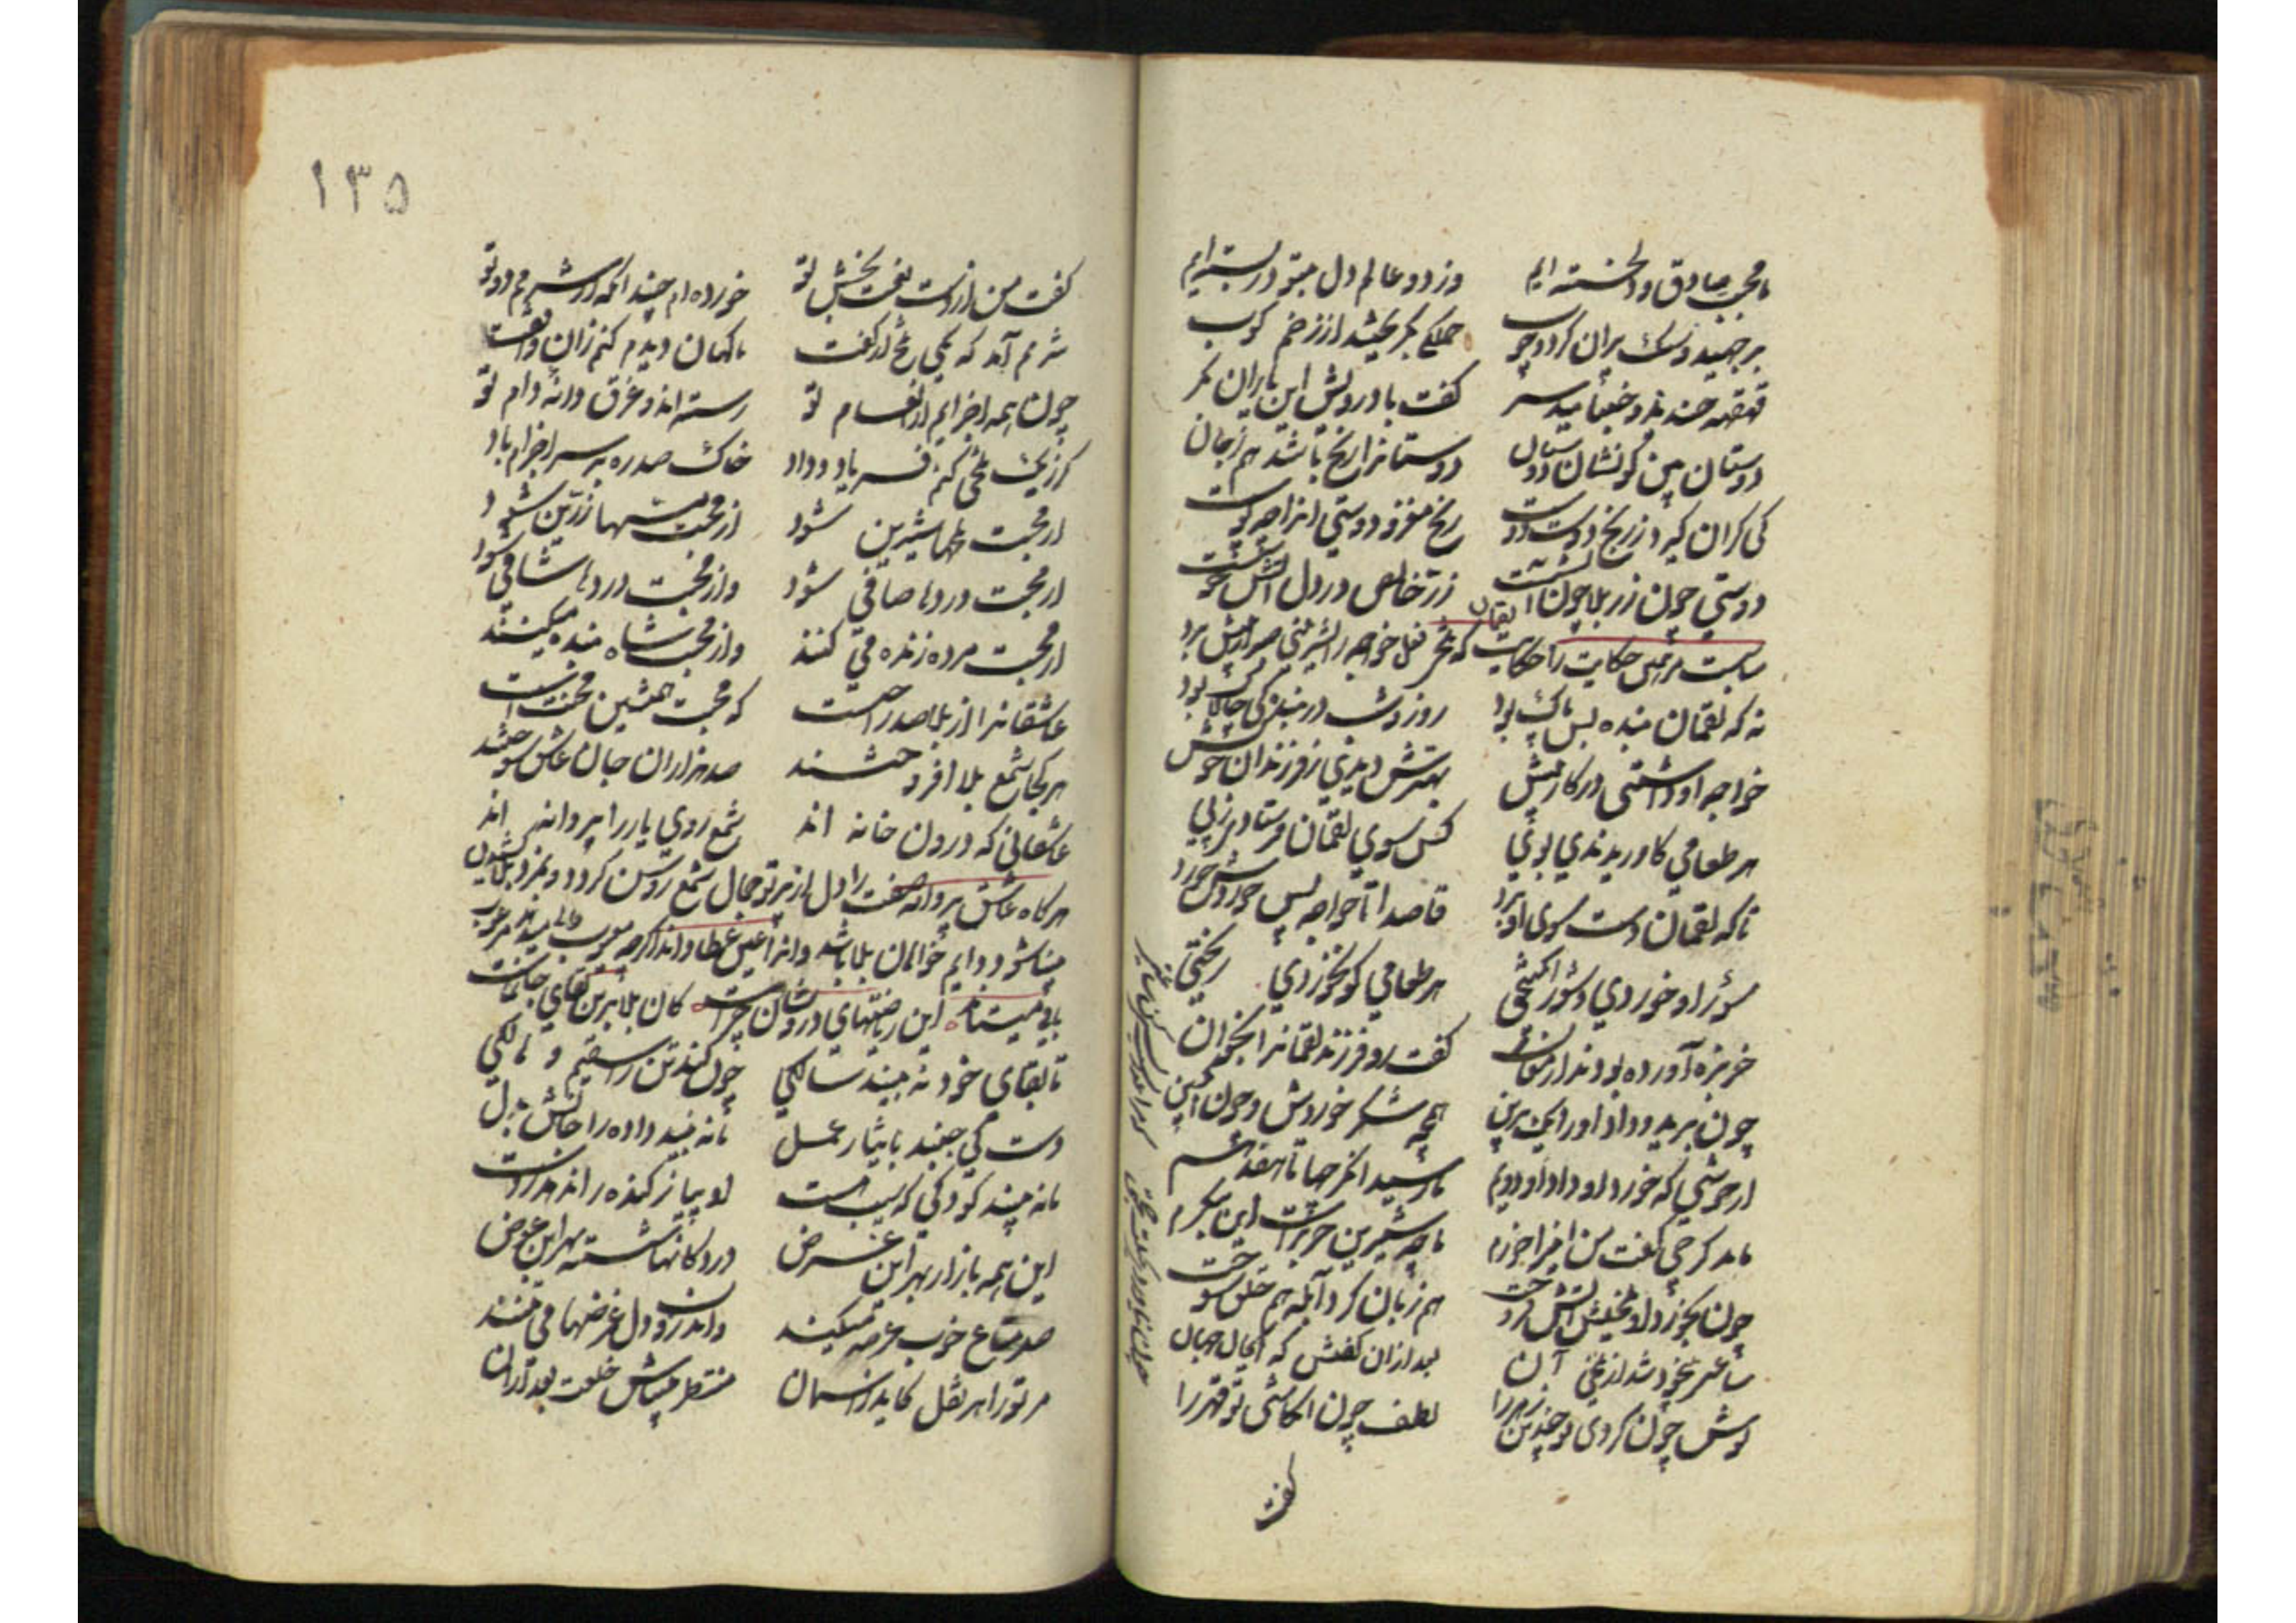 ما محب صادق و دلخسته ایم وز دو عالم دل بتو دربسته ایم
برجهید و سنگ پران کرد و چوب جملگی بگریختند از زخم کوب
قهقهه خندید و جنبانید سر کفت با درویش این یاران نکر
دوستان بین کو نشان دوستان دوستانرا رنج باشد هم ز جان
کی کران کیرد ز رنج دوست دوست رنج مغز و دوستی انرا چو پوست
دوستی چون زر بلا چون آتشست زر خالص در دل آتش خوشست
مناسبت مر این حکایت را حکایت لقمان که
نه که لقمان بنده بس پاک بود روز و شب در بندکی چالاک بود
خواجه او داشتی در کار پیش بهترش دیدی ز فرزندان خویش
هر طعامی کاوریدندی بوی کس سوی لقمان فرستادی ز پی
تا که لقمان دست سوی او برد قاصدا تا خواجه پس خوردش خورد
سؤر او خوردی و شور انکیختی هر طعامی کو نخوردی ریختی
خربزه آورده بودند ارمغان کفت رو فرزند لقمانرا بخوان
چون برید و داد او را یک برین همچو شکر خوردش و چون انکبین
از خوشی که خورد داد او را دویم تا رسید آن کرچها تا هفدهم
ماند کرچی کفت من این را خورم تا چه شیرین خربزه است این بنکرم
چون بخورد از تلخیش آتش فروخت هم زبان کرد آبله هم حلق سوخت
ساعتی بیخود شد از تلخی آن بعد ازان کفتش که ای جان جهان
نوش چون کردی تو چندین زهر را لطف چون انکاشتی تو قهر را
کفت
۱۳۵
کفت من از دست نعمت بخش تو خورده ام چندانکه از شرمم دوتو
شرمم آمد که یکی تلخ از کفت ناکهان دیدم کنم زان واقفت
چون همه اجزایم از انعام تو رسته اند و غرق دانه و دام تو
کر ز یک تلخی کنم فریاد و داد خاک صد ره بر سر اجزام باد
از محبت تلخها شیرین شود از محبت مسها زرین شود
از محبت دردها صافی شود واز محبت دردها شافی شود
از محبت مرده زنده می کنند واز محبت شاه بنده میکنند
عاشقانرا از بلا صد راحت است که محبت همنشین محنت است
هر کجا شمع بلا افروختند صد هزاران جان عاشق سوختند
عاشقانی که درون خانه اند شمع روی یار را پروانه اند
هرکاه عاشق پروانه صفت را دل از پرتو جمال شمع روشن کردد و
شود دایم خواهان بلا باشد وانرا عین عطا داند
این ریاضتهای درویشان چراست کان بلا بر تن بقای جانهاست
تا بقای خود نه بیند سالکی چون کند تن را سقیم و هالکی
دست کی جنبد بایثار عمل تا نه بیند داده را جانش بدل
تا نه بیند کودکی که سیب هست او پیاز کنده را ندهد ز دست
این همه بازار بهر این غرض در دکانها شسته بهر این عوض
صد متاع خوب عرضه میکنند واندرون دل غرضها می تنند
مر تورا هر نقل کاید ز اسمان منتظر میباش خلعت بعد ازان